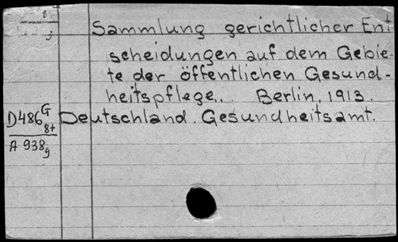 Sammlung gerichtlicher Ent
scheidungen auf dem Gebie-
te der öffentlichen Gesund-
heitspflege.. Berlin, 1913.
D486G Deutschland. Gesundheitsamt.
8+
A 938g